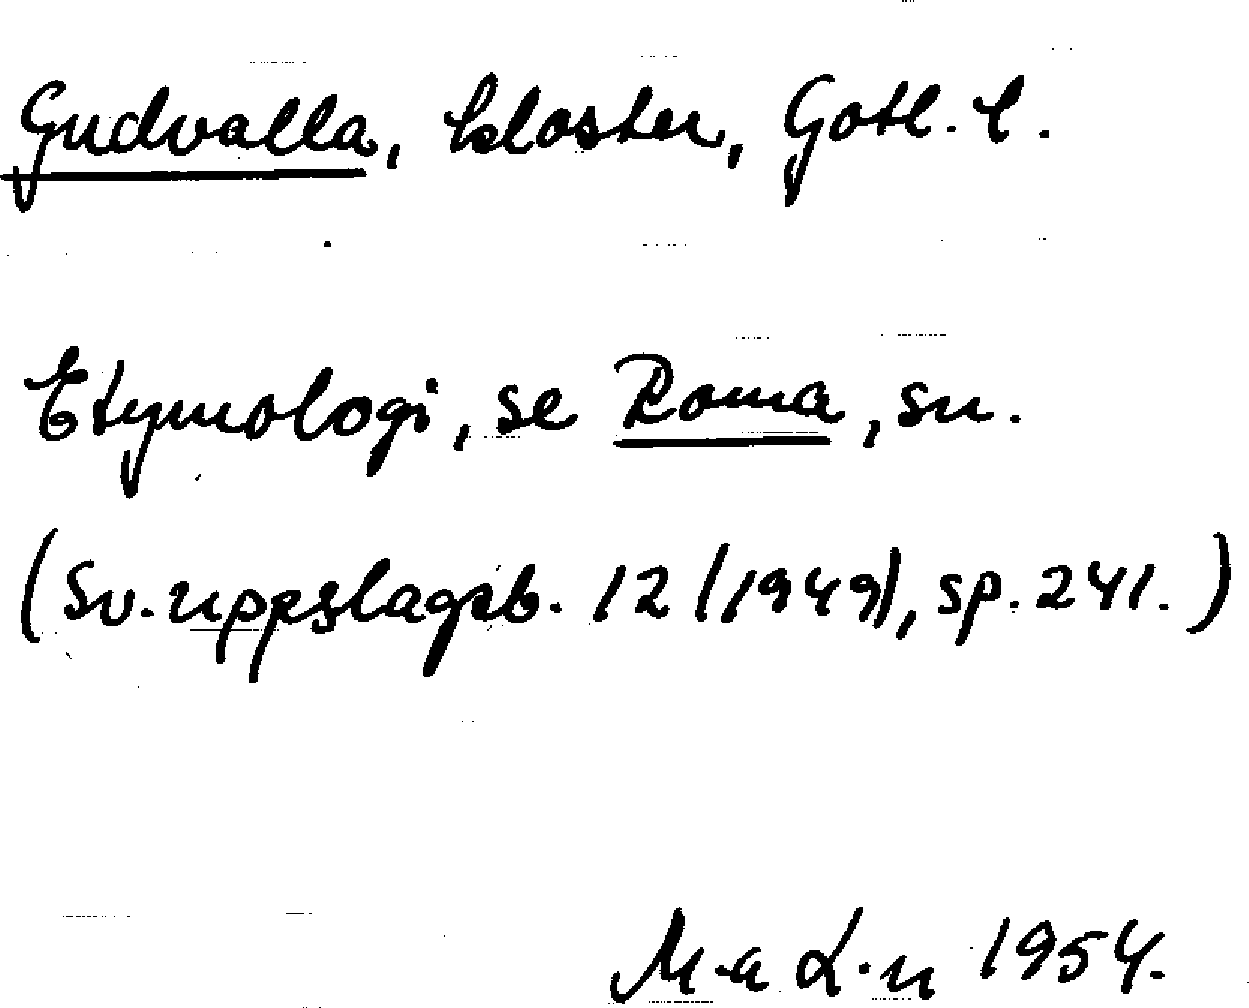 Gudvalla, kloster, Gotl. l.
Etymologi, se Roma, sn.
(Sv. uppslagsb. 12 (1949), sp. 241.)
M-a L-n 1954.